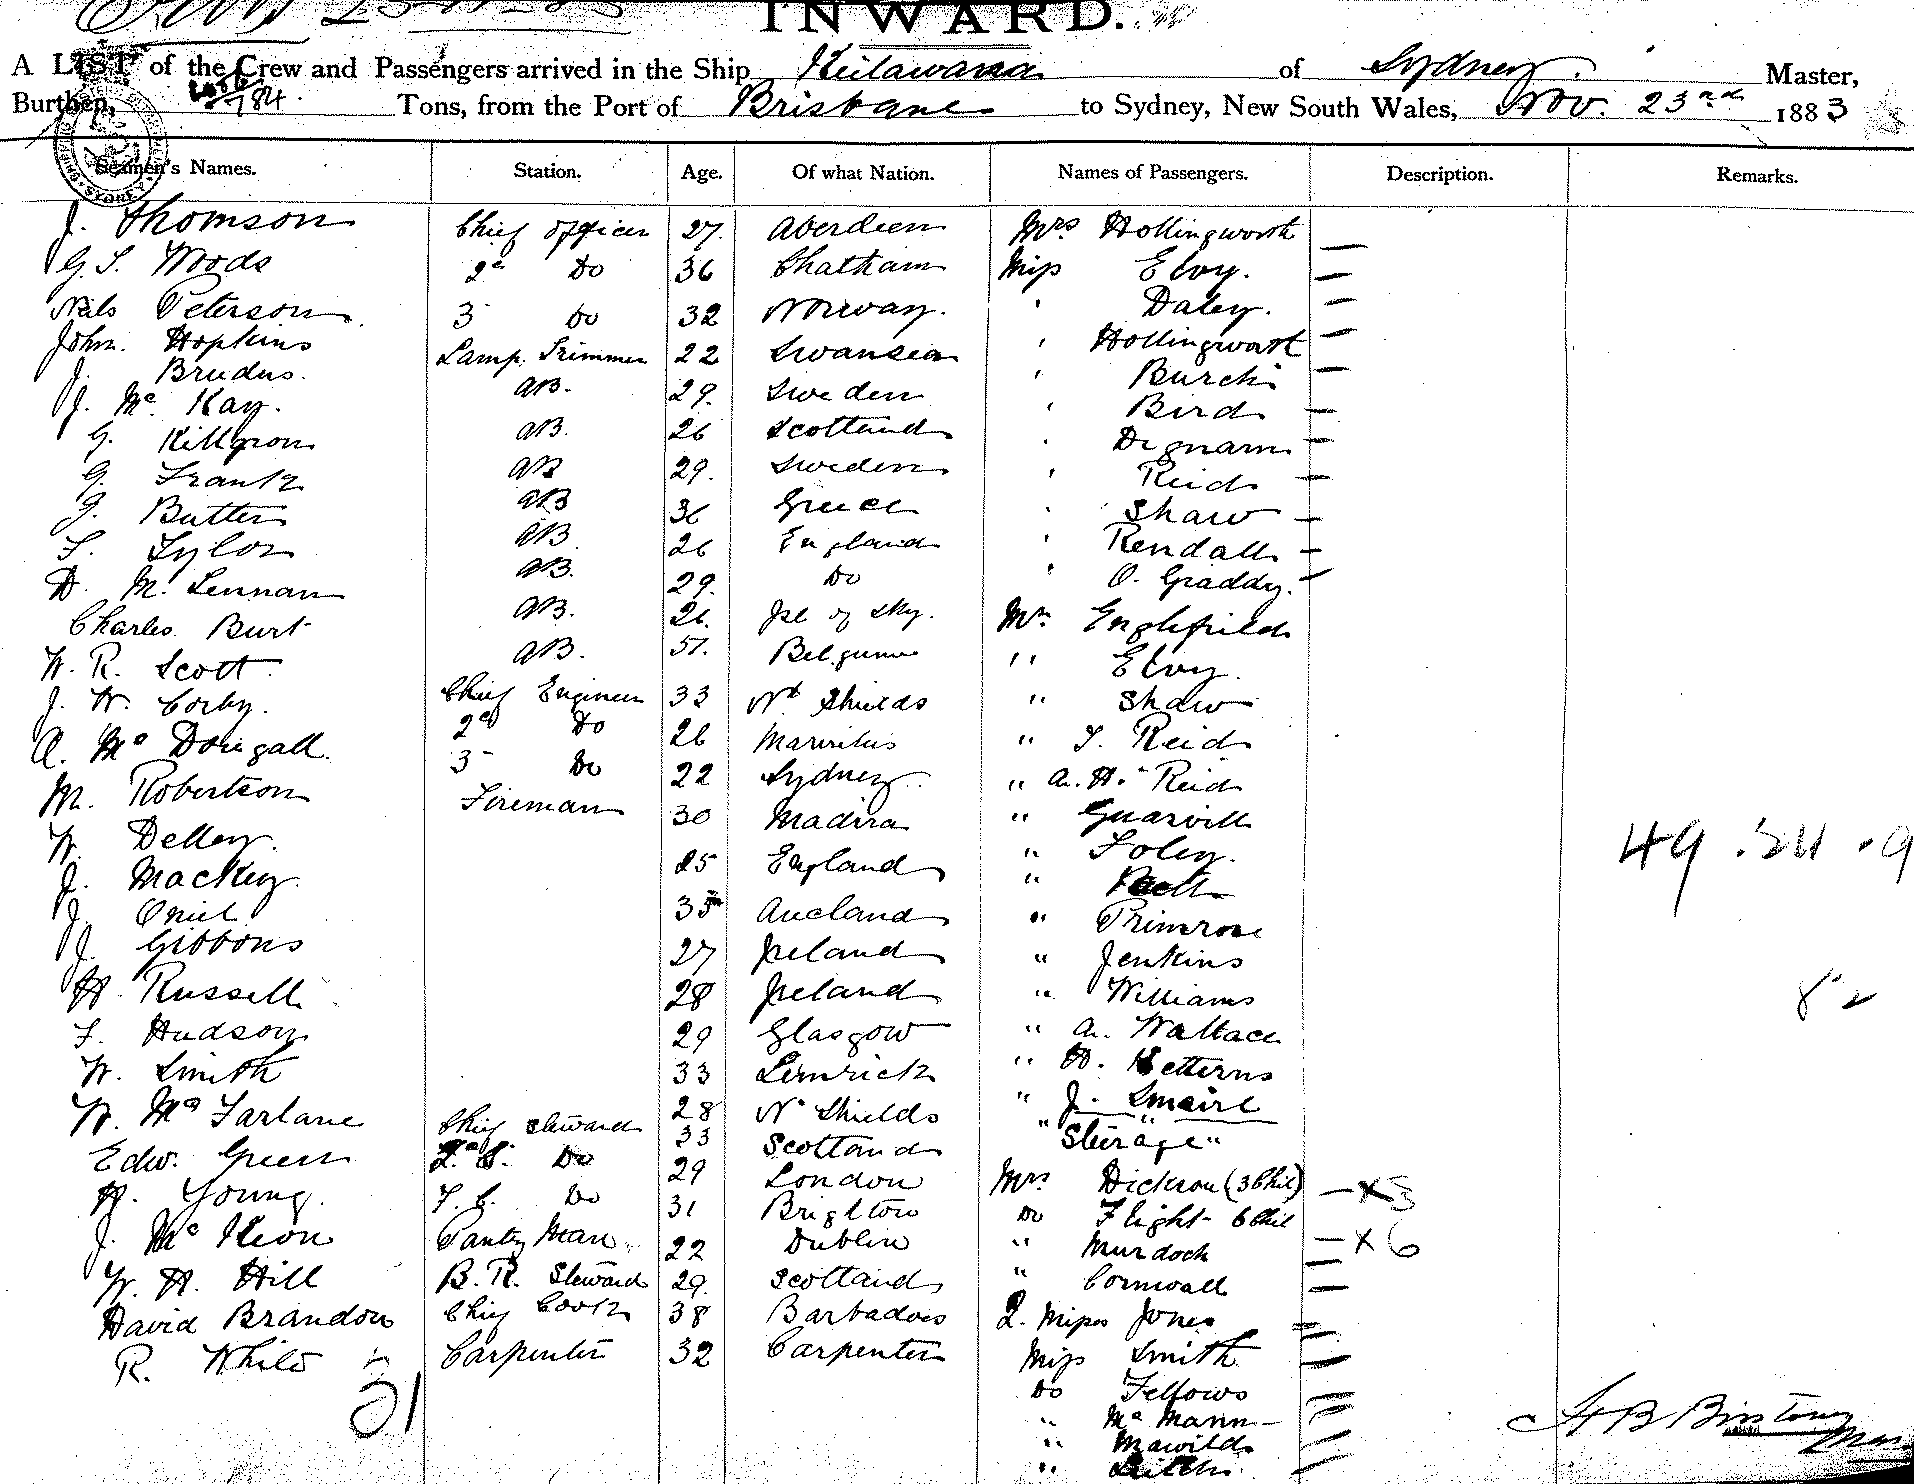 INWARD.
A LIST of the Crew and Passengers arrived in the Ship Keilawarra of Sydney Master,
Burthen, 784 Tons, from the Port of Brisbane to Sydney, New South Wales, Nov. 23rd 1883
Seamen's Names. Station. Age. Of what Nation. Names of Passengers. Description. Remarks.
J. Thomson Chief Officer 27. Aberdeen Mrs Hollingworth —
G. S. Woods 2d Do 36 Chatham Miss Eloy. —
Nils Peterson 3 Do 32 Norway. ' Daley. —
John Hopkins Lamp. Trimmer 22 Swansea ' Hollingworth —
J. Brudus. AB. 29. Sweden ' Burch —
J. Mc Kay. AB. 26 Scotland ' Bird —
G. Killgron AB 29. Sweden ' Dignam —
G. Frantz AB 36 Greece ' Reid —
J. Butter AB 26 England ' Shaw —
F. Tylor AB. 29. Do ' Kendall —
D. M. Lennan AB. 26. Isl of Sky. ' O. Graddy. —
Charles Burt AB. 51. Belgium Mr. Englefield
W. R. Scott Chief Engineer 33 Nth Shields " Eloy.
J. W. Corby. 2d Do 26 Mauritius " Shaw
A. Mc Dougall. 3 Do 22 Sydney. " T. Reid
M. Robertson Fireman 30 Madira " A. H. Reid
W. Delley. 25 England " Guarvill
J. Mackey. 35 Aucland " Foley.
J. Oniel 27 Ireland "
J. Gibbons 28 Ireland " Primrose
H. Russell 29 Glasgow " Jenkins
F. Hudson 33 Limrick " Williams
W. Smith 28 N. Shields " A. Wallace
W. Mc Farlane Chief Steward 33 Scotland " H. Ketterns
Edw. Green Do 29 London " J.
H. Young. F. C. Do 31 Brighton "Sterage"
J. Mc Keon Pantry Man 22 Dublin Mrs. Dickson (3 Chil) — x 3
W. H. Hill B. R. Steward 29. Scotland Do Flight 6 Chil — x 6
David Brandon Chief Cook 38 Barbadoes " Murdoch —
R. White Carpenter 32 Carpenter " Cornwall —
31
2. Misses Jones =
Miss Smith —
Do Fellows
" Mc Mann
" Mawilds
"
49 . 34 . 9
82